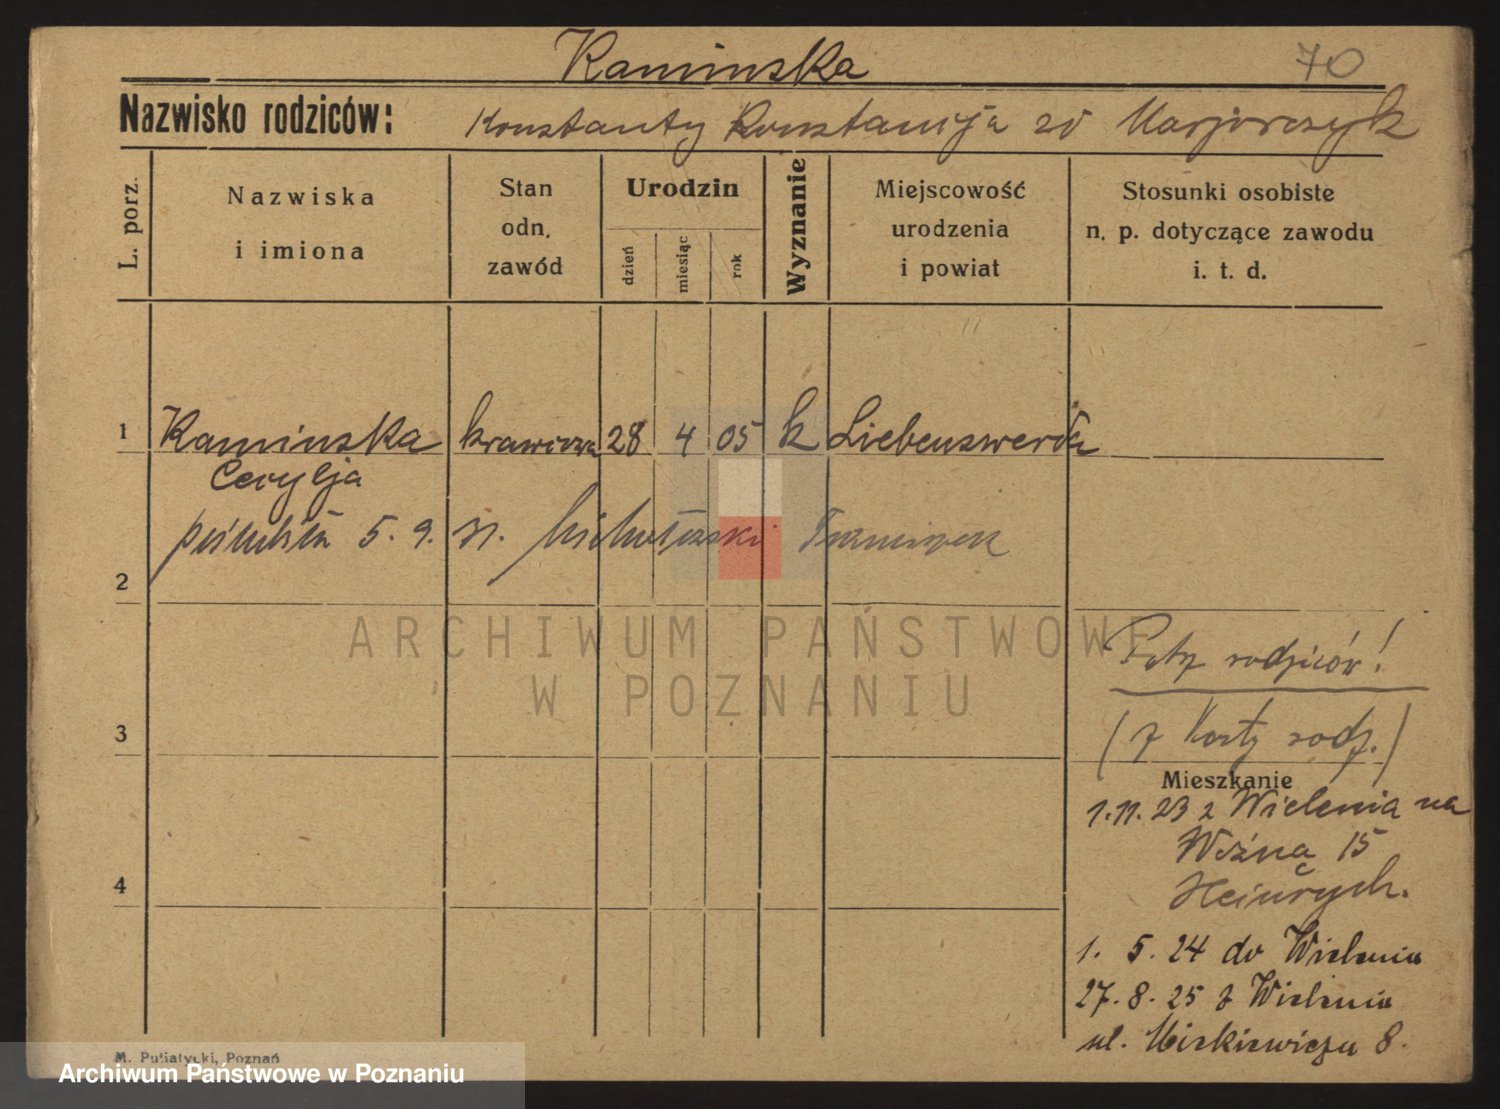 Kaminska
70
Nazwisko rodziców: Konstanty Konstancja zd Marjorczyk
L. porz.
Nazwiska
i imiona
Stan
odn.
zawód
Urodzin
dzień
miesiąc
rok
Wyznanie
Miejscowość
urodzenia
i powiat
Stosunki osobiste
n. p. dotyczące zawodu
i. t. d.
1 Kaminska krawcowa 28 4 05 k Liebenswerda
Cecylja
poślubiła 5. 9. 31. Franciszek
2
ARCHIWUM PAŃSTWOWE
W POZNANIU
rodziców!
3
(z Karty rodz.)
Mieszkanie
1.11.23 z Wielenia na
Woźną 15
4
Heinrych.
1. 5. 24 do Wielenia
27. 8. 25 z Wielenia
ul. Mickiewicza 8.
M. Putiatycki, Poznań
Archiwum Państwowe w Poznaniu